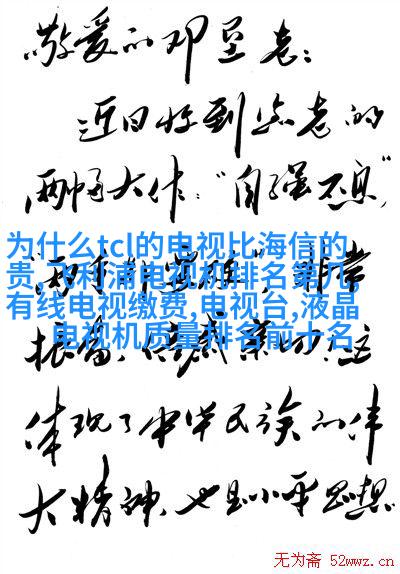 敬爱的邓垦老：
近日收到您老的
两幅大作："自强不息"，
为什么tcl的电视比海信的
贵,飞利浦电视机排名第九,
有线电视缴费,电视台,液晶
电视机质量排名前十名
非常
振奋，这
体现了中华民族的伟
大精神，也是小平思想
无为斋 52wwz.cn